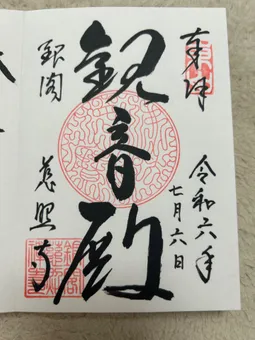 奉拝
令和六年
七月六日
観音殿
銀閣
慈照寺